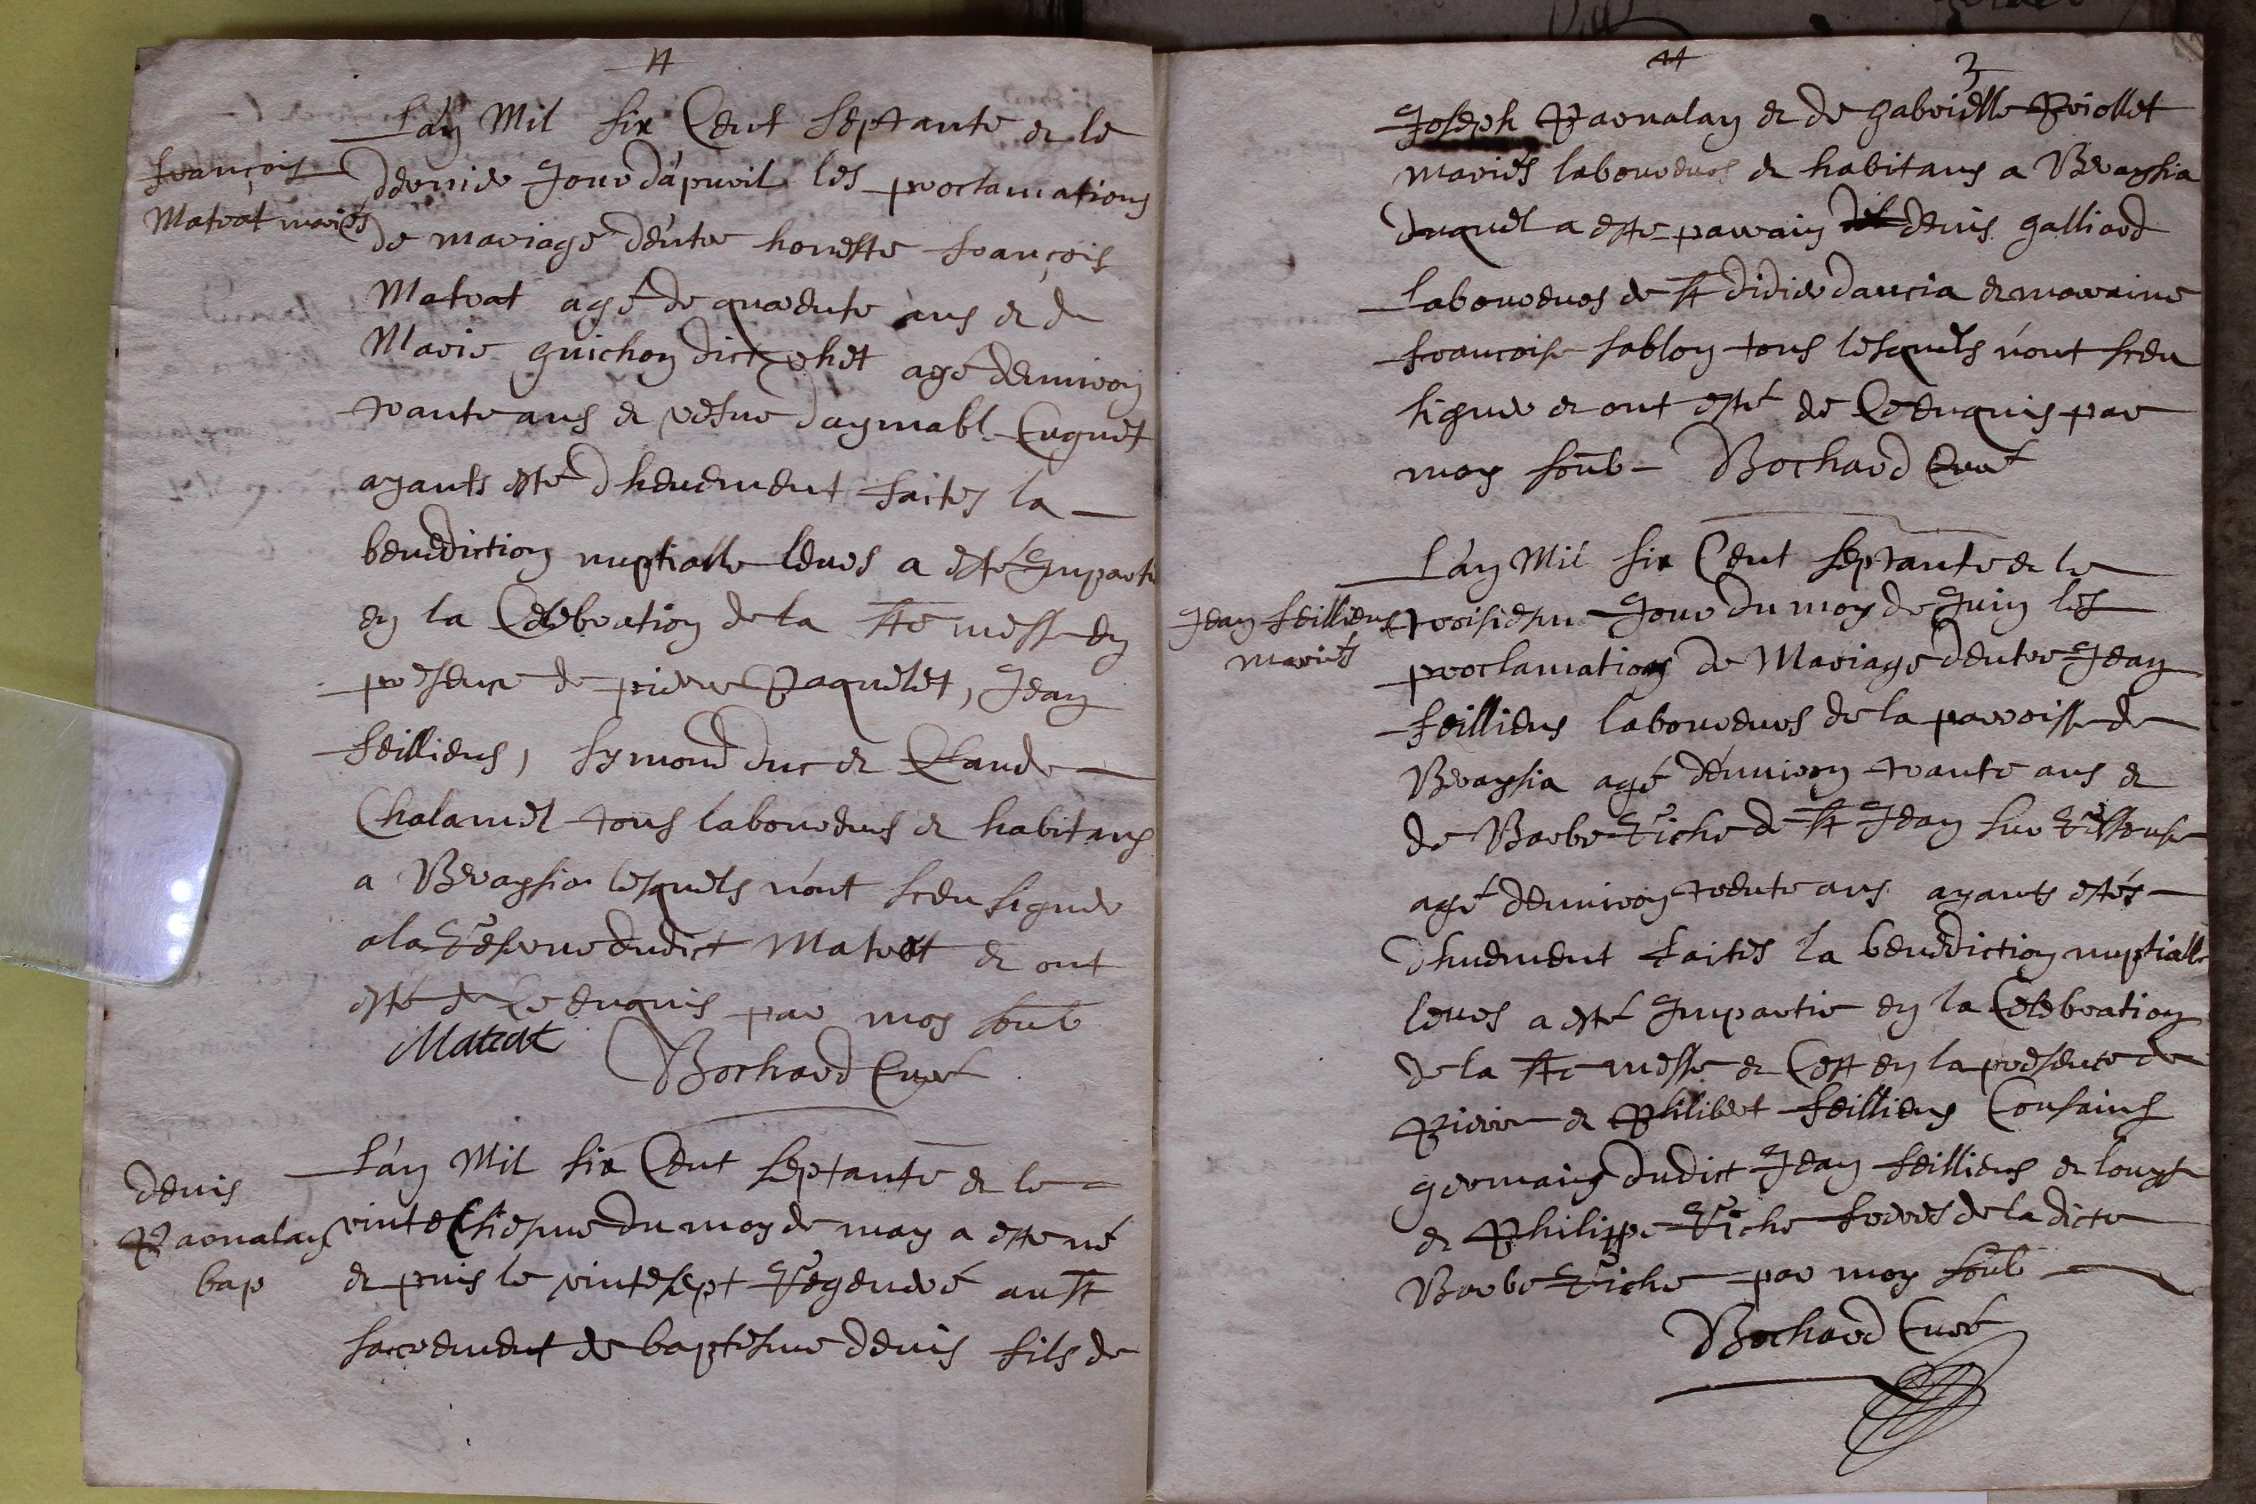 L'an Mil six Cent septante et le
françois
Matrat mariés
dernier Jour d'apvril les proclamations
de mariage d'entre honeste françois
Matrat agé de quarente ans et de
Marie guichon dict agé denviron
trante ans et vefve daymabl Cuguet
ayants esté dheuement faites la
benediction nuptialle leurs a esté Impartie
en la Celebration de la Ste messe en
presence de pierre Paquelet, Jean
feilliens, symond duc et Claude
Chalamel tous laboureurs et habitans
a Breyssia lesquels n'ont sceu signer
a la Reserve dudict Matrat et ont
esté de Ce enquis par moy soub
Matrat
Bochard Curé
L'an Mil six Cent septante et le
denis
Parnalan
bap
vintesiesme du moy de may a este né
et puis le vintesept Regendré au St
sacrement de baptesme denis fils de
3
Joseph Parnalan et de gabrielle Priollet
mariés laboureurs et habitans a Breyssia
duquel a este parrain denis galliard
laboureurs de St didier daucia et marraine
francoise sablon tous lesquels n'ont sceu
signer et ont esté de Ce enquis par
moy soub Bochard Curé
L'an Mil six Cent septante et le
Jean feilliens
mariés
troisiesme Jour du moy de Juin les
proclamations de Mariage dentre Jean
feilliens laboureurs de la parroisse de
Breyssia agé d'environ trante ans et
de Barbe Riche de St Jean sur Rissouse
agé denviron trente ans ayants estés
dhuement faites la benediction nuptialle
leurs a esté Impartie en la Celebration
de la Ste messe et Cest en la presence de
Pierre et Philibert feilliens Cousains
germains dudict Jean feilliens et louys
et Philippe Riche freres de la dicte
Barbe Riche par moy soub
Bochard Curé